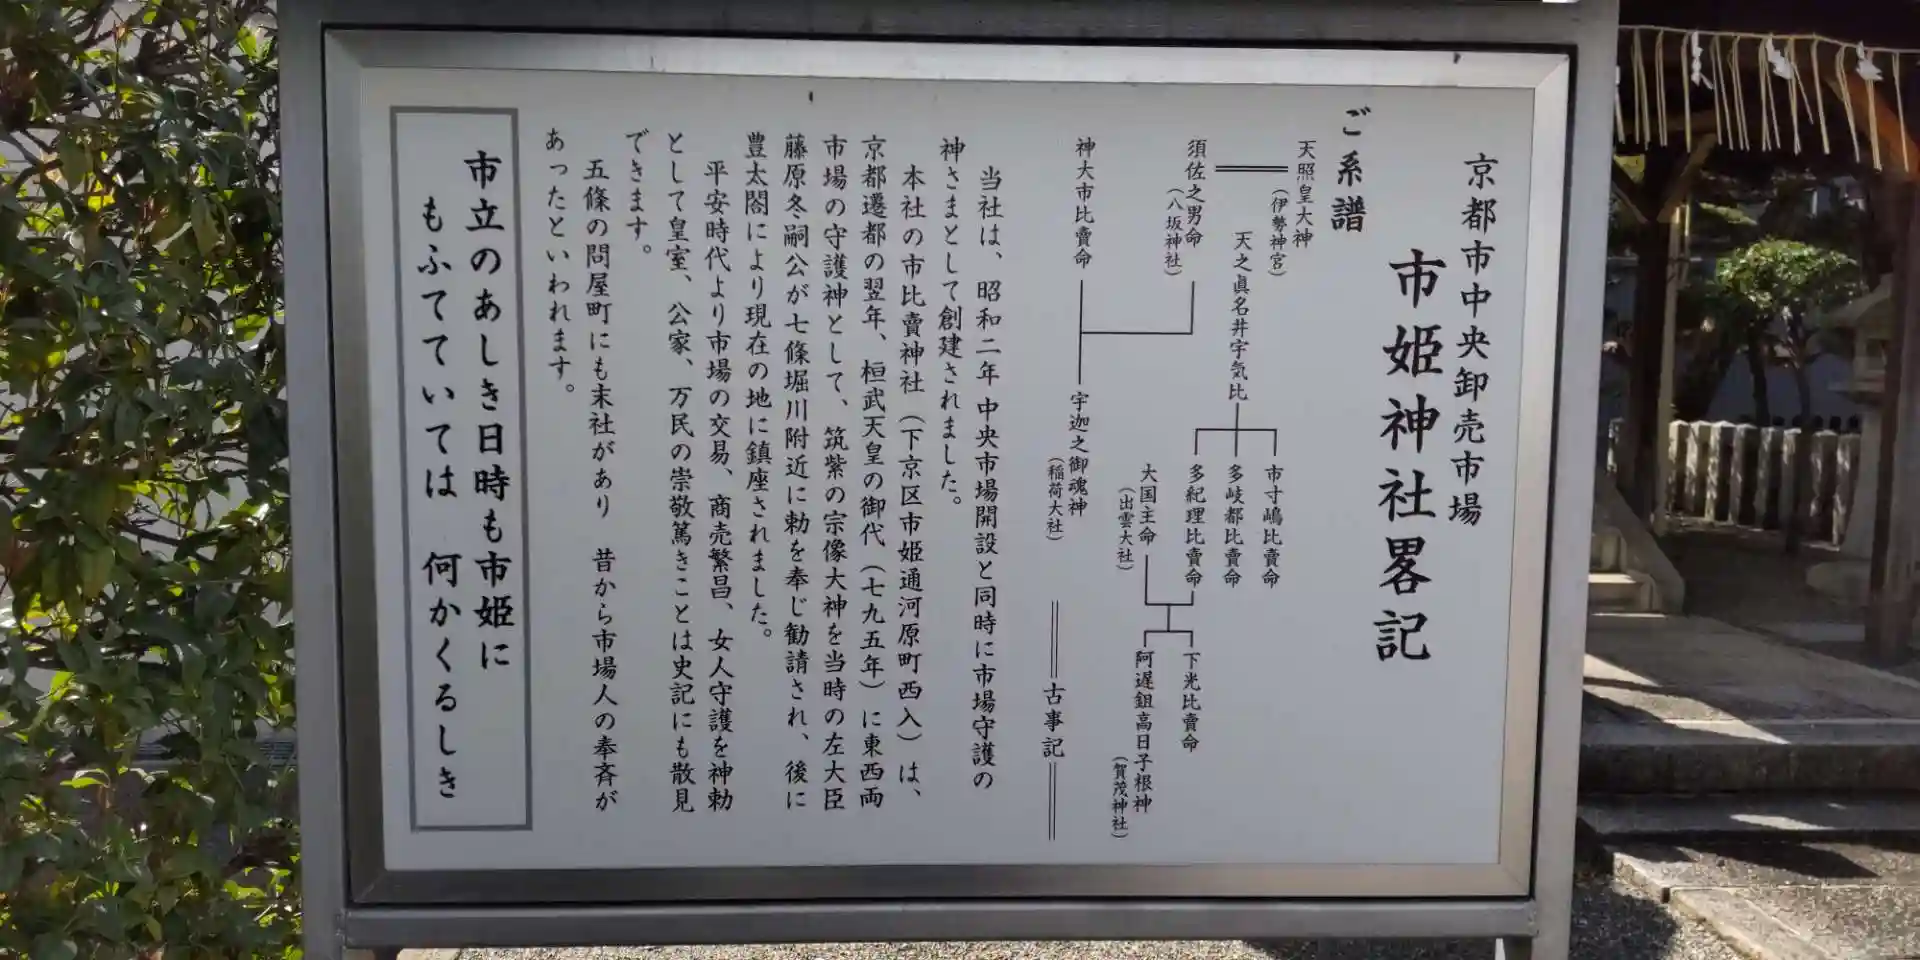 京都市中央卸売市場
市姫神社畧記
ご系譜
天照皇大神
(伊勢神宮)
天之眞名井宇気比
須佐之男命
(八坂神社)
市寸嶋比賣命
多岐都比賣命
多紀理比賣命
大国主命
(出雲大社)
下光比賣命
阿遅鉏高日子根神
(賀茂神社)
神大市比賣命
宇迦之御魂神
(稲荷大社)
古事記
当社は、昭和二年中央市場開設と同時に市場守護の
神さまとして創建されました。
本社の市比賣神社(下京区市姫通河原町西入)は、
京都遷都の翌年、桓武天皇の御代(七九五年)に東西両
市場の守護神として、筑紫の宗像大神を当時の左大臣
藤原冬嗣公が七條堀川附近に勅を奉じ勧請され、後に
豊太閤により現在の地に鎮座されました。
平安時代より市場の交易、商売繁昌、女人守護を神勅
として皇室、公家、万民の崇敬篤きことは史記にも散見
できます。
五條の問屋町にも末社があり 昔から市場人の奉斉が
あったといわれます。
市立のあしき日時も市姫に
もふてていては 何かくるしき